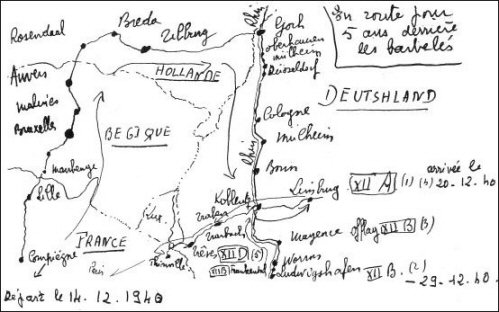 En route pour
5 ans derrière
les barbelés
Rosendaal
Breda
Tilburg
Rhin
Goch
Oberhausen
Mulheim
Düsseldorf
HOLLANDE
Anvers
Malines
Bruxelles
BEGIQUE
DEUTSHLAND
Cologne
Mulheim
Rhin
Bonn
Maubenge
Lille
Koblentz
Limburg XII A (1) (4) arrivée le
20-12.40
Lux.
Mayence Offlag XII B (3)
Compiègne
FRANCE
Paris
Thionville
Trêves XII D (5)
Worms
Ludwigshafen XII B. (2)
-29-12.40.
Départ le 14.12.1940